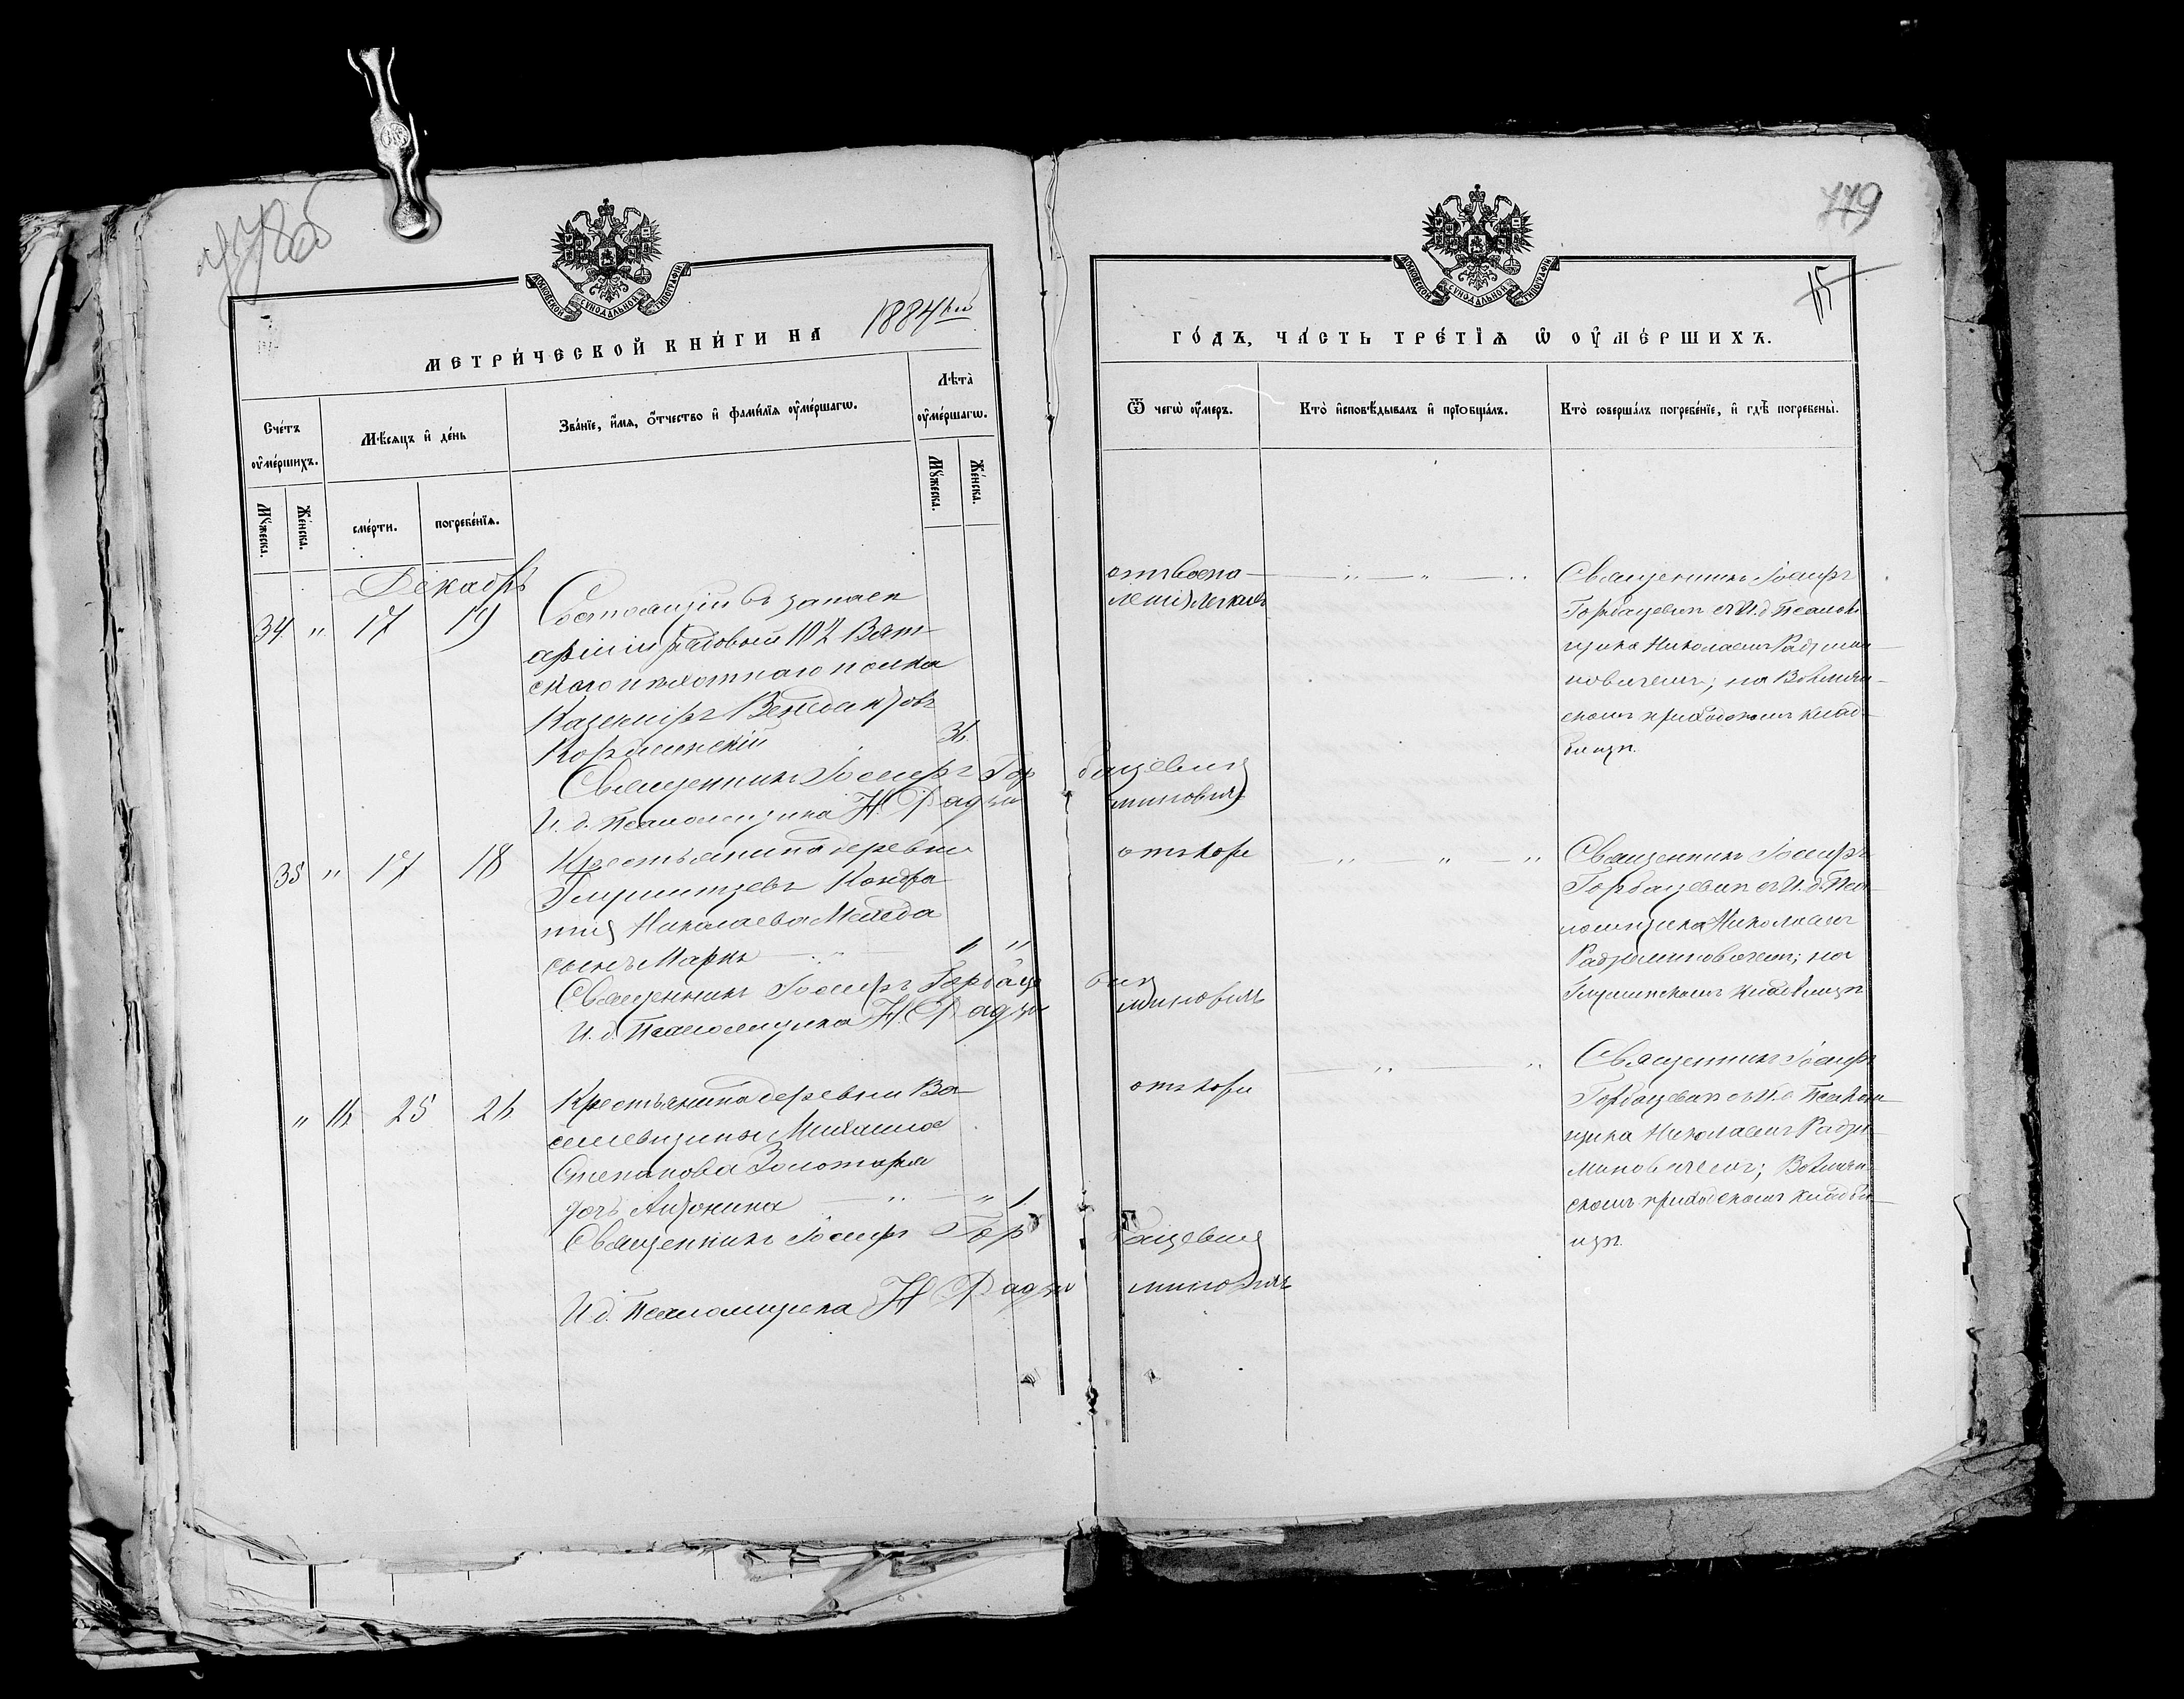 МОСКОВСКОЙ СѴНОДАЛЬНОЙ ТИПОГРАФІИ
МЕТРИ́ЧЕСКОЙ КНИ́ГИ НА 1884
Сче́тъ ᲂу҆ме́ршихъ.
Мѣ́сяцъ и҆ де́нь
Зва́нїе, и҆́мѧ, ѻ҆́тчество и҆ фами́лїѧ ᲂу҆ме́ршагѡ.
Лѣ́та ᲂу҆ме́ршагѡ.
Мꙋ́жеска.
Же́нска.
сме́рти.
погребе́нїѧ.
Мꙋ́жеска.
Же́нска.
Декабрь
34 " 17 19
Состоящій въ запасѣ
арміи рядовый 102 Вят-
скаго пѣхотнаго полка
Казимиръ Венедиктовъ
36
Священникъ Іосифъ Горбацевичъ
И. д. Псаломщика Н. Радзиминовичъ
35 " 17 18
Крестьянина деревни
Кондра
тія Николаева
сынъ Маркъ " 1 "
Священникъ Іосифъ Горбацевичъ
И. д. Псаломщика Н. Радзиминовичъ
" 16 25 26
Крестьянина деревни Ва-
Михаила
Степанова Золотаря
дочь Антонина " " 1
Священникъ Іосифъ Горбацевичъ
И. д. Псаломщика Н Радзиминовичъ
779
15
МОСКОВСКОЙ СѴНОДАЛЬНОЙ ТИПОГРАФІИ
ГО́ДЪ, ЧА́СТЬ ТРЕ́ТЇѦ Ѡ҆ ОУ҆МЕ́РШИХЪ.
Ѿ чегѡ̀ ᲂу҆́меръ.
Кто̀ и҆сповѣ́дывалъ и҆ прїѡбща́лъ.
Кто̀ соверша́лъ погребе́нїе, и҆ гдѣ̀ погребены̀.
отъ воспа-
ленія легкихъ
" "
Священникъ Іосифъ
Горбацевичъ съ И. д. Псалом
щика Николаемъ Радзими-
новичемъ; на
скомъ приходскомъ клад-
бищѣ.
отъ кори
" " "
Священникъ Іосифъ
Горбацевичъ съ И. д. Пса-
ломщика Николаемъ
Радзиминовичемъ; на
кладбищѣ
отъ кори
" "
Священникъ Іосифъ
Горбацевичъ съ И. д. Псалом
щика Николаемъ Радзи-
миновичемъ;
скомъ приходскомъ кладби-
щѣ.